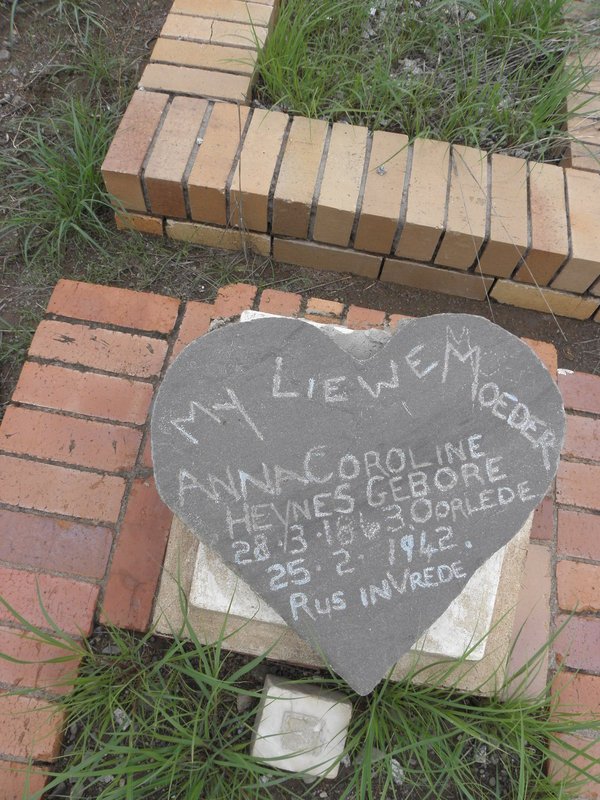 MY LIEWE MOEDER
ANNA COROLINE
HEYNES GEBORE
28.3.1863. OORLEDE
25.2.1942.
RUS IN VREDE